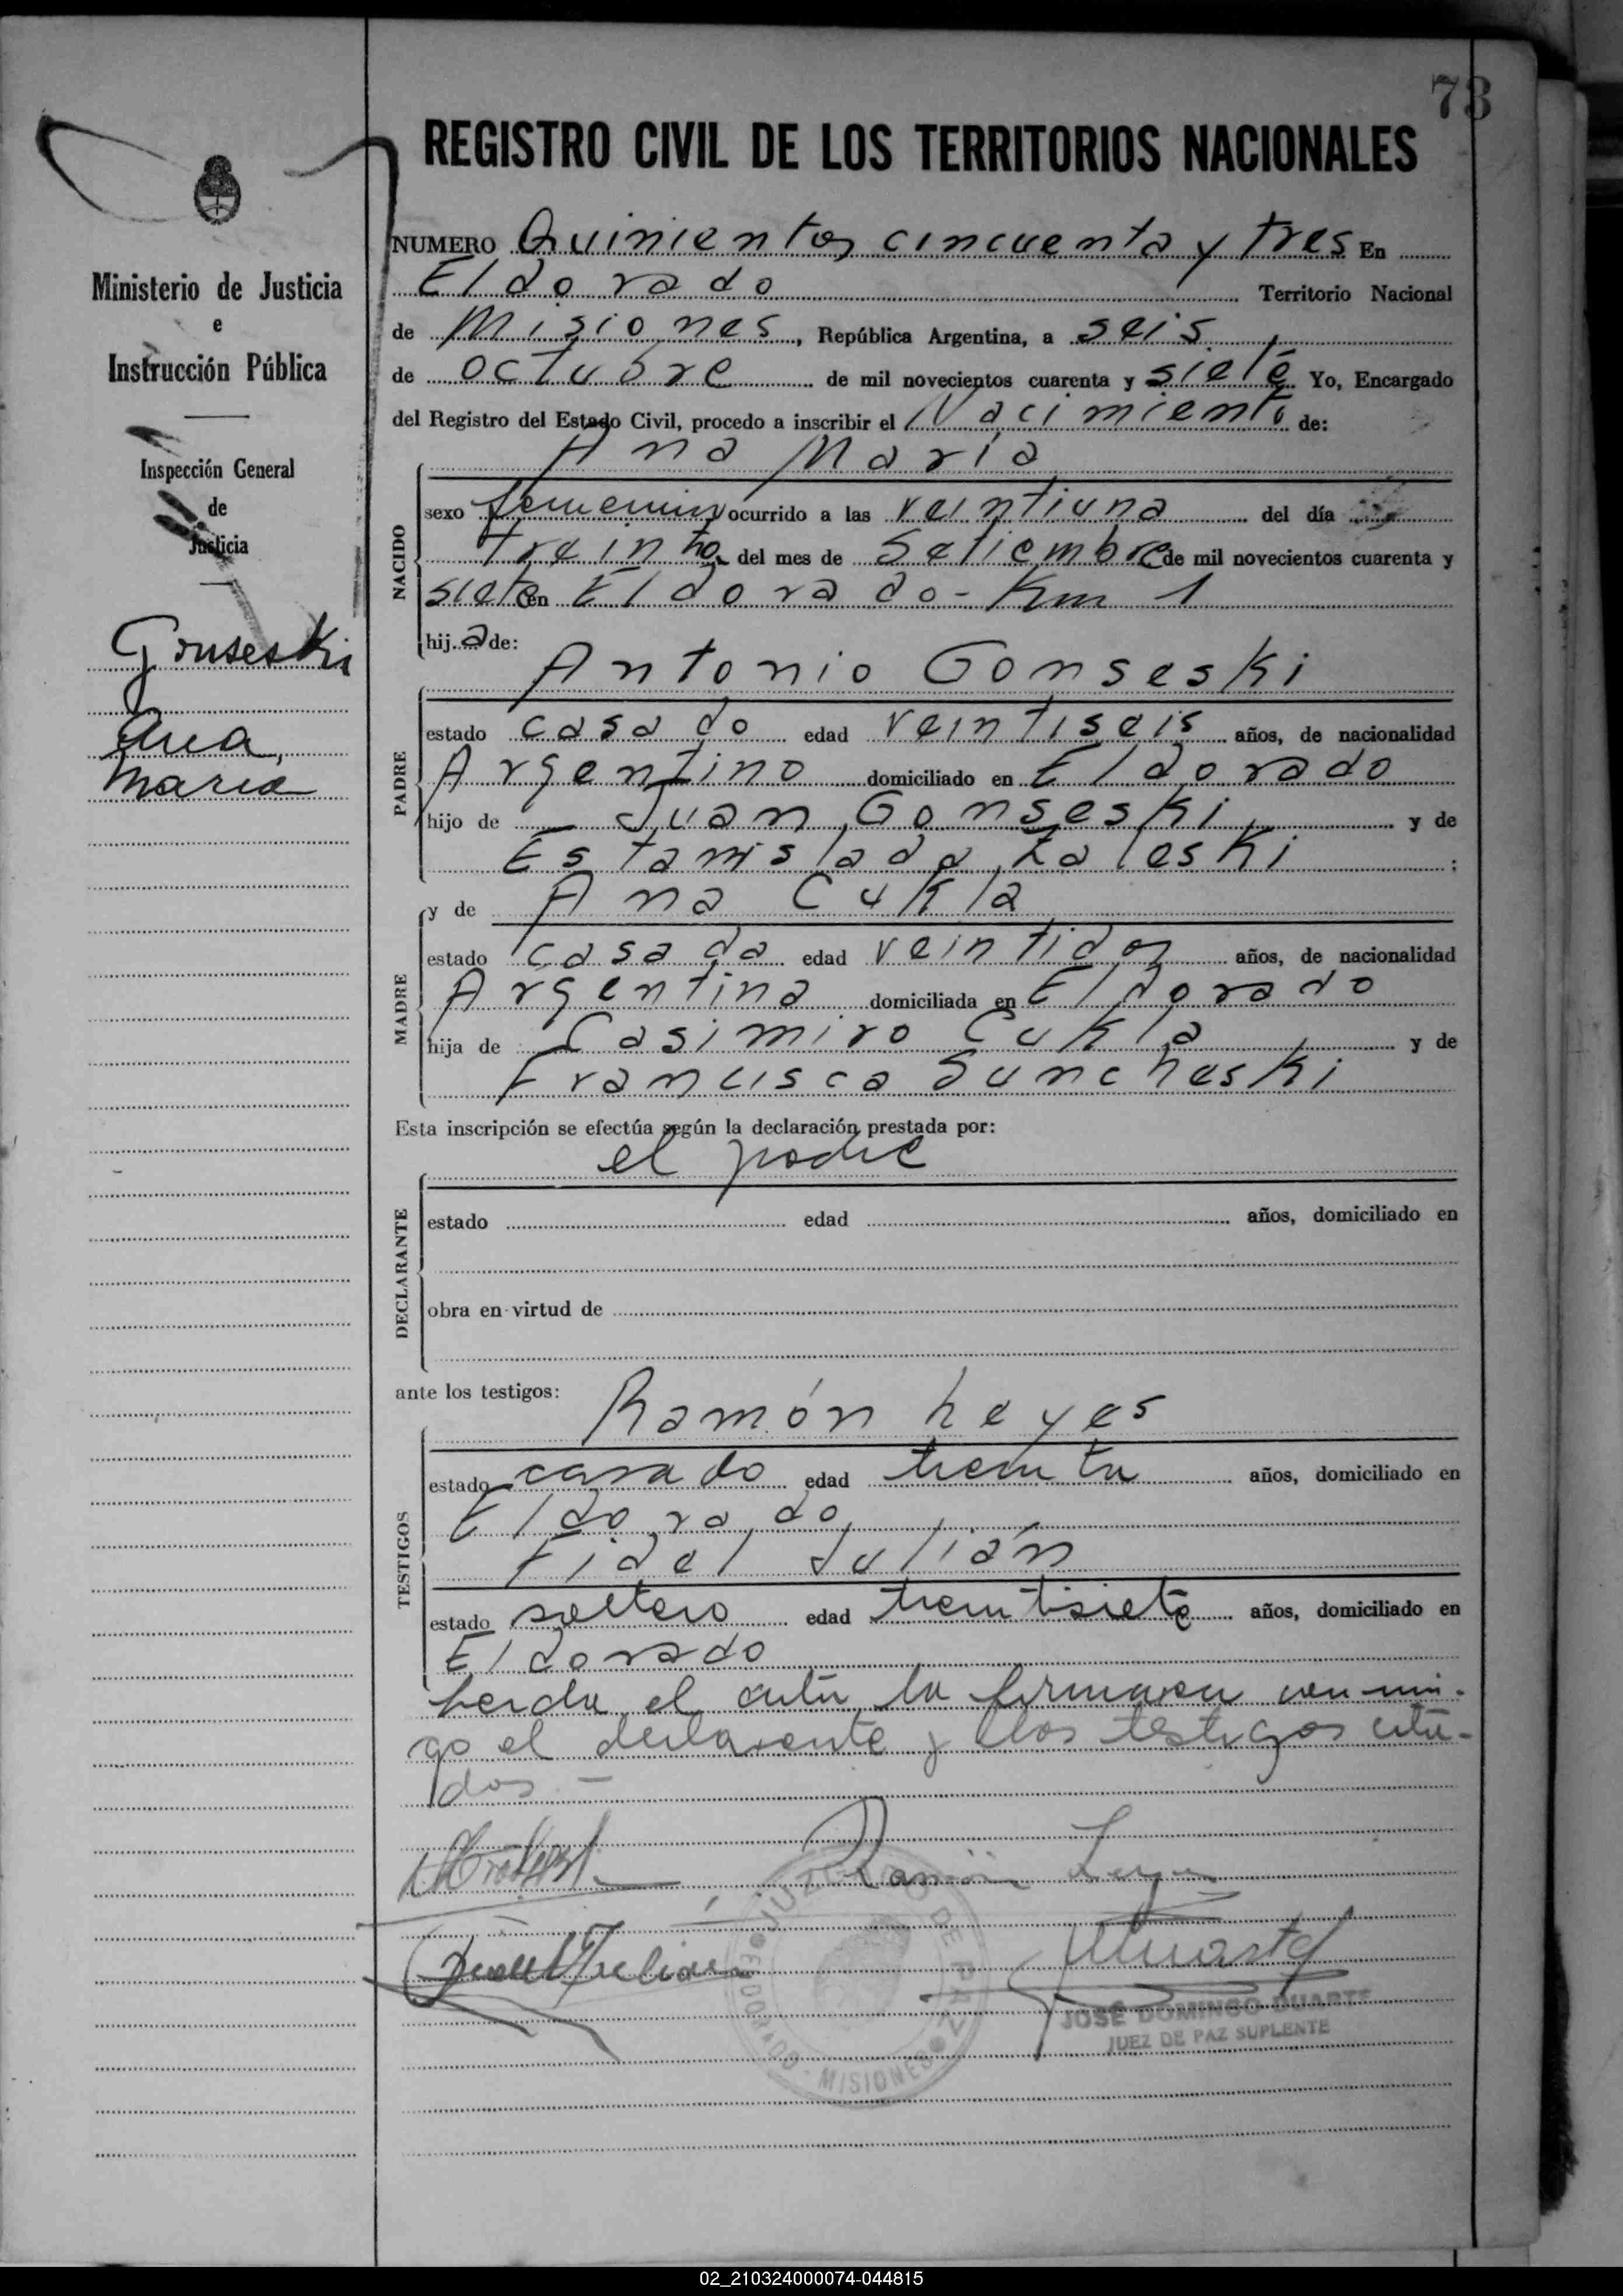 73
REGISTRO CIVIL DE LOS TERRITORIOS NACIONALES
Ministerio de Justicia
e
Instrucción Pública
Inspección General
de
Justicia
Gonseski
Ana
Maria
NUMERO Quinientos cincuenta y tres En
Eldorado Territorio Nacional
de Misiones, República Argentina, a seis
de octubre de mil novecientos cuarenta y siete Yo, Encargado
del Registro del Estado Civil, procedo a inscribir el Nacimiento de:
Ana Maria
NACIDO
sexo femenino ocurrido a las veintiuna del día
treinta del mes de Setiembre de mil novecientos cuarenta y
siete en Eldorado - Km 1
hija de:
Antonio Gonseski
PADRE
estado casado edad veintiseis años, de nacionalidad
Argentino domiciliado en Eldorado
hijo de Juan Gonseski y de
Estanislada Zaleski ;
y de Ana Cukla
MADRE
estado casada edad veintidos años, de nacionalidad
Argentina domiciliada en Eldorado
hija de Casimiro Cukla y de
Francisca Suncheski
Esta inscripción se efectúa según la declaración prestada por:
el padre
DECLARANTE
estado edad años, domiciliado en
obra en virtud de
ante los testigos:
Ramón Leyes
TESTIGOS
estado casado edad treinta años, domiciliado en
Eldorado
Fidel Julián
estado soltero edad treintisiete años, domiciliado en
Eldorado
Leida el acta la firmaron conmi-
go el declarante y los testigos cita-
dos -
Ramón Leyes
JUZGADO DE PAZ
ELDORADO - MISIONES
JOSÉ DOMINGO DUARTE
JUEZ DE PAZ SUPLENTE
02_210324000074-044815